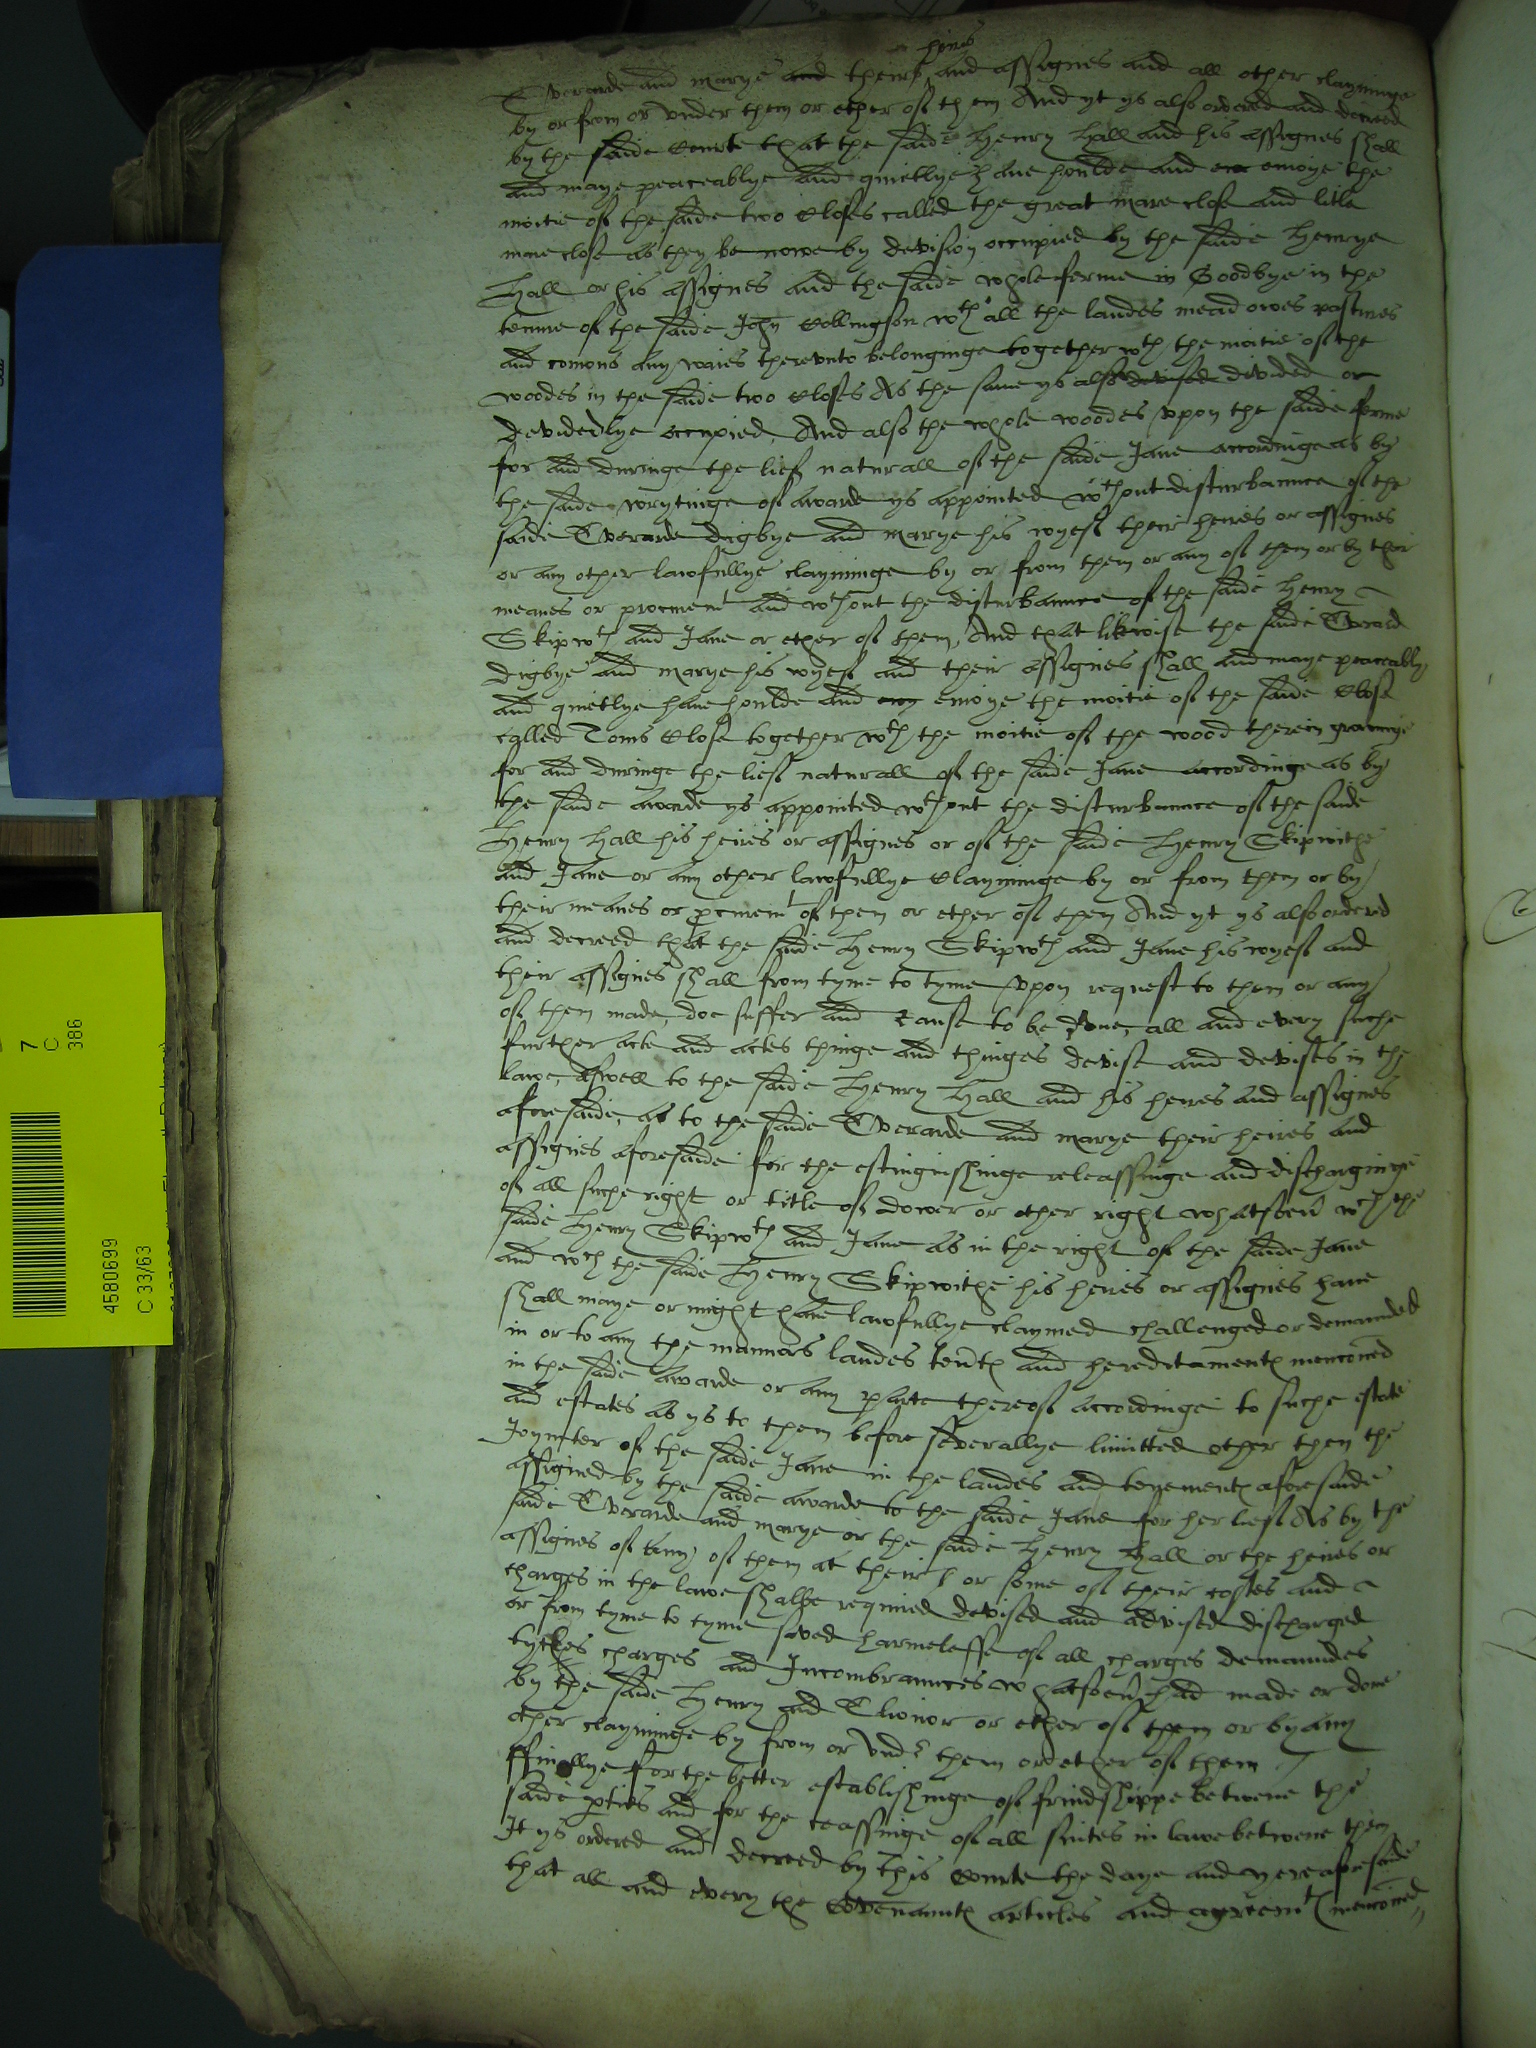 Everarde and Marye and theire heires and assignes and all other clayminge
by or from or vnder them or ether of them And yt ys also ordered and decreed
by the saide Courte that the saide Henry Hall and his assignes shall
and maye peaceablye and quietlye have houlde and enioye the
moitie of the saide two Closes called the great mare close and litle
mare close as they be nowe by devision occupied by the saide Henrye
Hall or his assignes and the saide whole ferme in Goodbye in the
tenure of the saide John Collingson wth all the landes meadowes pastures
and comons any waies therevnto belonginge together wth the moitie of the
woodes in the saide two Closes As the same ys also devised divided or
devidedlye occupied, And also the whole woodes vpon the saide ferme
for and duringe the lief naturall of the saide Jane accordinge as by
the saide wrytinge of awarde ys appointed wthout disturbaunce of the
saide Everarde Digbye and Marye his wyef their heires or assignes
or any other lawfullye clayminge by or from them or any of them or by their
meanes or procuremt and wthout the disturbaunce of the saide Henry
Skipwth and Jane or ether of them, And that likewise the saide Everard
Digbye and Marye his wyef and their assignes shall and maye peaceably
and quietlye have houlde and eny enioye the moitie of the saide Close
called Toms Close together wth the moitie of the wood therein growinge
for and duringe the lief naturall of the saide Jane accordinge as by
the saide awarde ys appointed wthout the disturbaunce of the saide
Henry Hall his heires or assignes or of the saide Henry Skipwithe
and Jane or any other lawfullye Clayminge by or from them or by
their meanes or pcuremt of them or ether of them And yt ys also ordered
and decreed that the saide Henry Skipwth and Jane his wyef and
their assignes shall from tyme to tyme vpon request to them or any
of them made, doe suffer and cause to be done, all and every suche
further acte and actes thinge and thinges devise and devises in the
lawe, aswell to the saide Henry Hall and his heires and assignes
aforesaide, as to the saide Everarde and Marye their heires and
assignes aforesaide for the estinguishinge releassinge and discharginge
of all suche right or title of dower or other right whatsoeu wch the
saide Henry Skipwth and Jane as in the right of the saide Jane
and wch the saide Henry Skipwithe his heires or assignes have
shall maye or might have lawfullye claymed challenged or demaunded
in or to any the mannors landes tents and hereditaments mencioned
in the saide awarde or any parte thereof accordinge to suche estate
and estates as ys to them before severallye limitted other then the
Joynter of the saide Jane in the landes and tenements aforesaide
assigned by the saide awarde to the saide Jane for her lief As by the
saide Everarde and Marye or the saide Henry Hall or the heires or
assignes of any of them at their or some of their costes and
charges in the lawe shalbe required devised and advised discharged
or from tyme to tyme saved harmelesse of all charges demaundes
charges and Incombraunces whatsoeu had made or done
by the saide Henry and Elionor or ether of them or by any
other clayminge by from or vnd them or ether of them
ffinallye for the better establishinge of frindshippe betwene the
saide pties and for the ceassinge of all suites in lawe betwene them
It ys ordered and decreed by this Courte the daye and yere aforesaide
that all and every the Covenaunts articles and agreemts mencioned
7
C
386
4580699
C 33/63